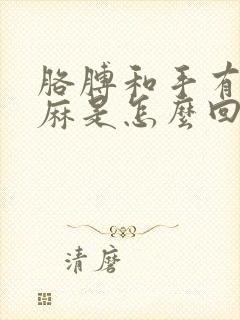 胳膊和手有
麻是怎麼回
清麿